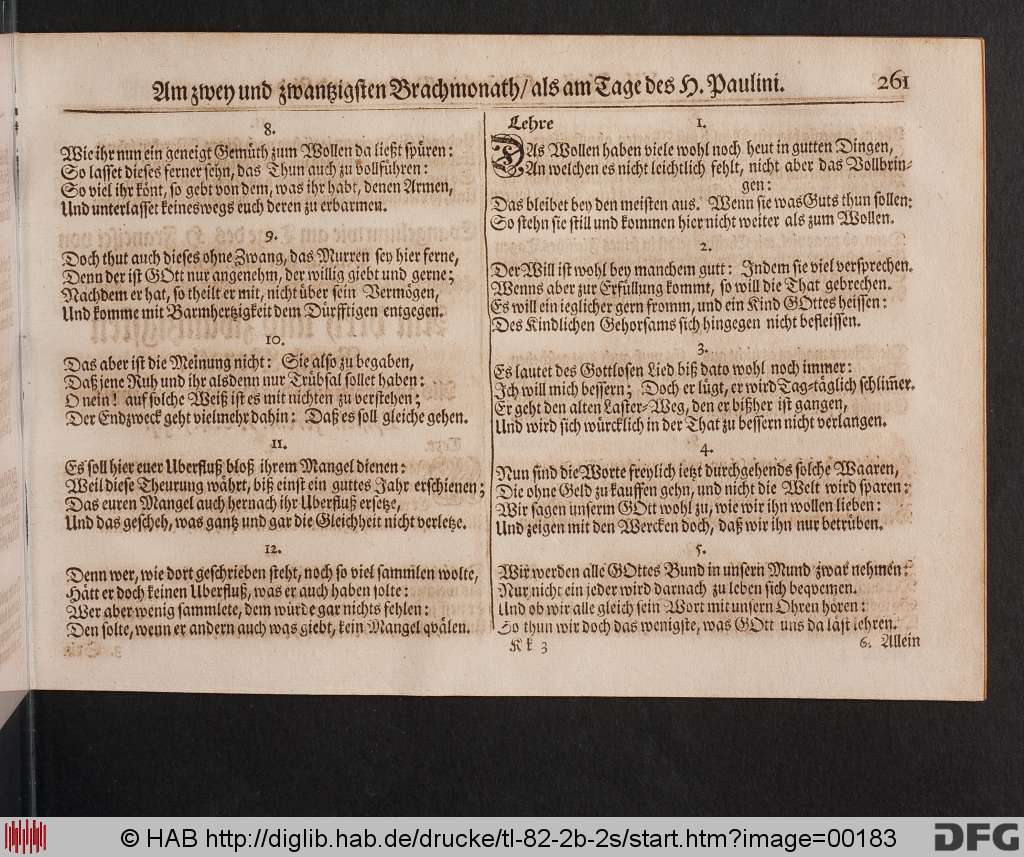 Am zwey und zwantzigsten Brachmonath/ als am Tage des H. Paulini. 261
8.
Wie ihr nun ein geneigt Gemüth zum Wollen da ließt spüren:
So lasset dieses ferner sehn, das Thun auch zu vollführen:
So viel ihr könt, so gebt von dem, was ihr habt, denen Armen,
Und unterlasset keineswegs euch deren zu erbarmen.
9.
Doch thut auch dieses ohne Zwang, das Murren sey hier ferne,
Denn der ist GOtt nur angenehm, der willig giebt und gerne;
Nachdem er hat, so theilt er mit, nicht über sein Vermögen,
Und komme mit Barmhertzigkeit dem Dürfftigen entgegen.
10.
Das aber ist die Meinung nicht: Sie also zu begaben,
Daß jene Ruh und ihr alsdenn nur Trübsal sollet haben:
O nein! auf solche Weiß ist es mit nichten zu verstehen;
Der Endzweck geht vielmehr dahin: Daß es soll gleiche gehen.
11.
Es soll hier euer Uberfluß bloß ihrem Mangel dienen:
Weil diese Theurung währt, biß einst ein guttes Jahr erschienen;
Das euren Mangel auch hernach ihr Uberfluß ersetze,
Und das gescheh, was gantz und gar die Gleichheit nicht verletze.
12.
Denn wer, wie dort geschrieben steht, noch so viel sammlen wolte,
Hätt er doch keinen Uberfluß, was er auch haben solte:
Wer aber wenig sammlete, dem würde gar nichts fehlen:
Den solte, wenn er andern auch was giebt, kein Mangel qvälen.
Lehre 1.
DAs Wollen haben viele wohl noch heut in gutten Dingen,
An welchen es nicht leichtlich fehlt, nicht aber das Vollbrin-
gen:
Das bleibet bey den meisten aus. Wenn sie was Guts thun sollen:
So stehn sie still und kommen hier nicht weiter als zum Wollen.
2.
Der Will ist wohl bey manchem gutt: Indem sie viel versprechen.
Wenns aber zur Erfüllung kommt, so will die That gebrechen.
Es will ein ieglicher gern fromm, und ein Kind GOttes heissen:
Des Kindlichen Gehorsams sich hingegen nicht befleissen.
3.
Es lautet des Gottlosen Lied biß dato wohl noch immer:
Ich will mich bessern; Doch er lügt, er wird Tag-täglich schlim̄er.
Er geht den alten Laster-Weg, den er bißher ist gangen,
Und wird sich würcklich in der That zu bessern nicht verlangen.
4.
Nun sind die Worte freylich ietzt durchgehends solche Waaren,
Die ohne Geld zu kauffen gehn, und nicht die Welt wird sparen:
Wir sagen unserm GOtt wohl zu, wie wir ihn wollen lieben:
Und zeigen mit den Wercken doch, daß wir ihn nur betrüben.
5.
Wir werden alle GOttes Bund in unsern Mund zwar nehmen:
Nur nicht ein jeder wird darnach zu leben sich beqvemen.
Und ob wir alle gleich sein Wort mit unsern Ohren hören:
So thun wir doch das wenigste, was GOtt uns da läst lehren.
Kk 3 6. Allein
© HAB http://diglib.hab.de/drucke/tl-82-2b-2s/start.htm?image=00183 DFG